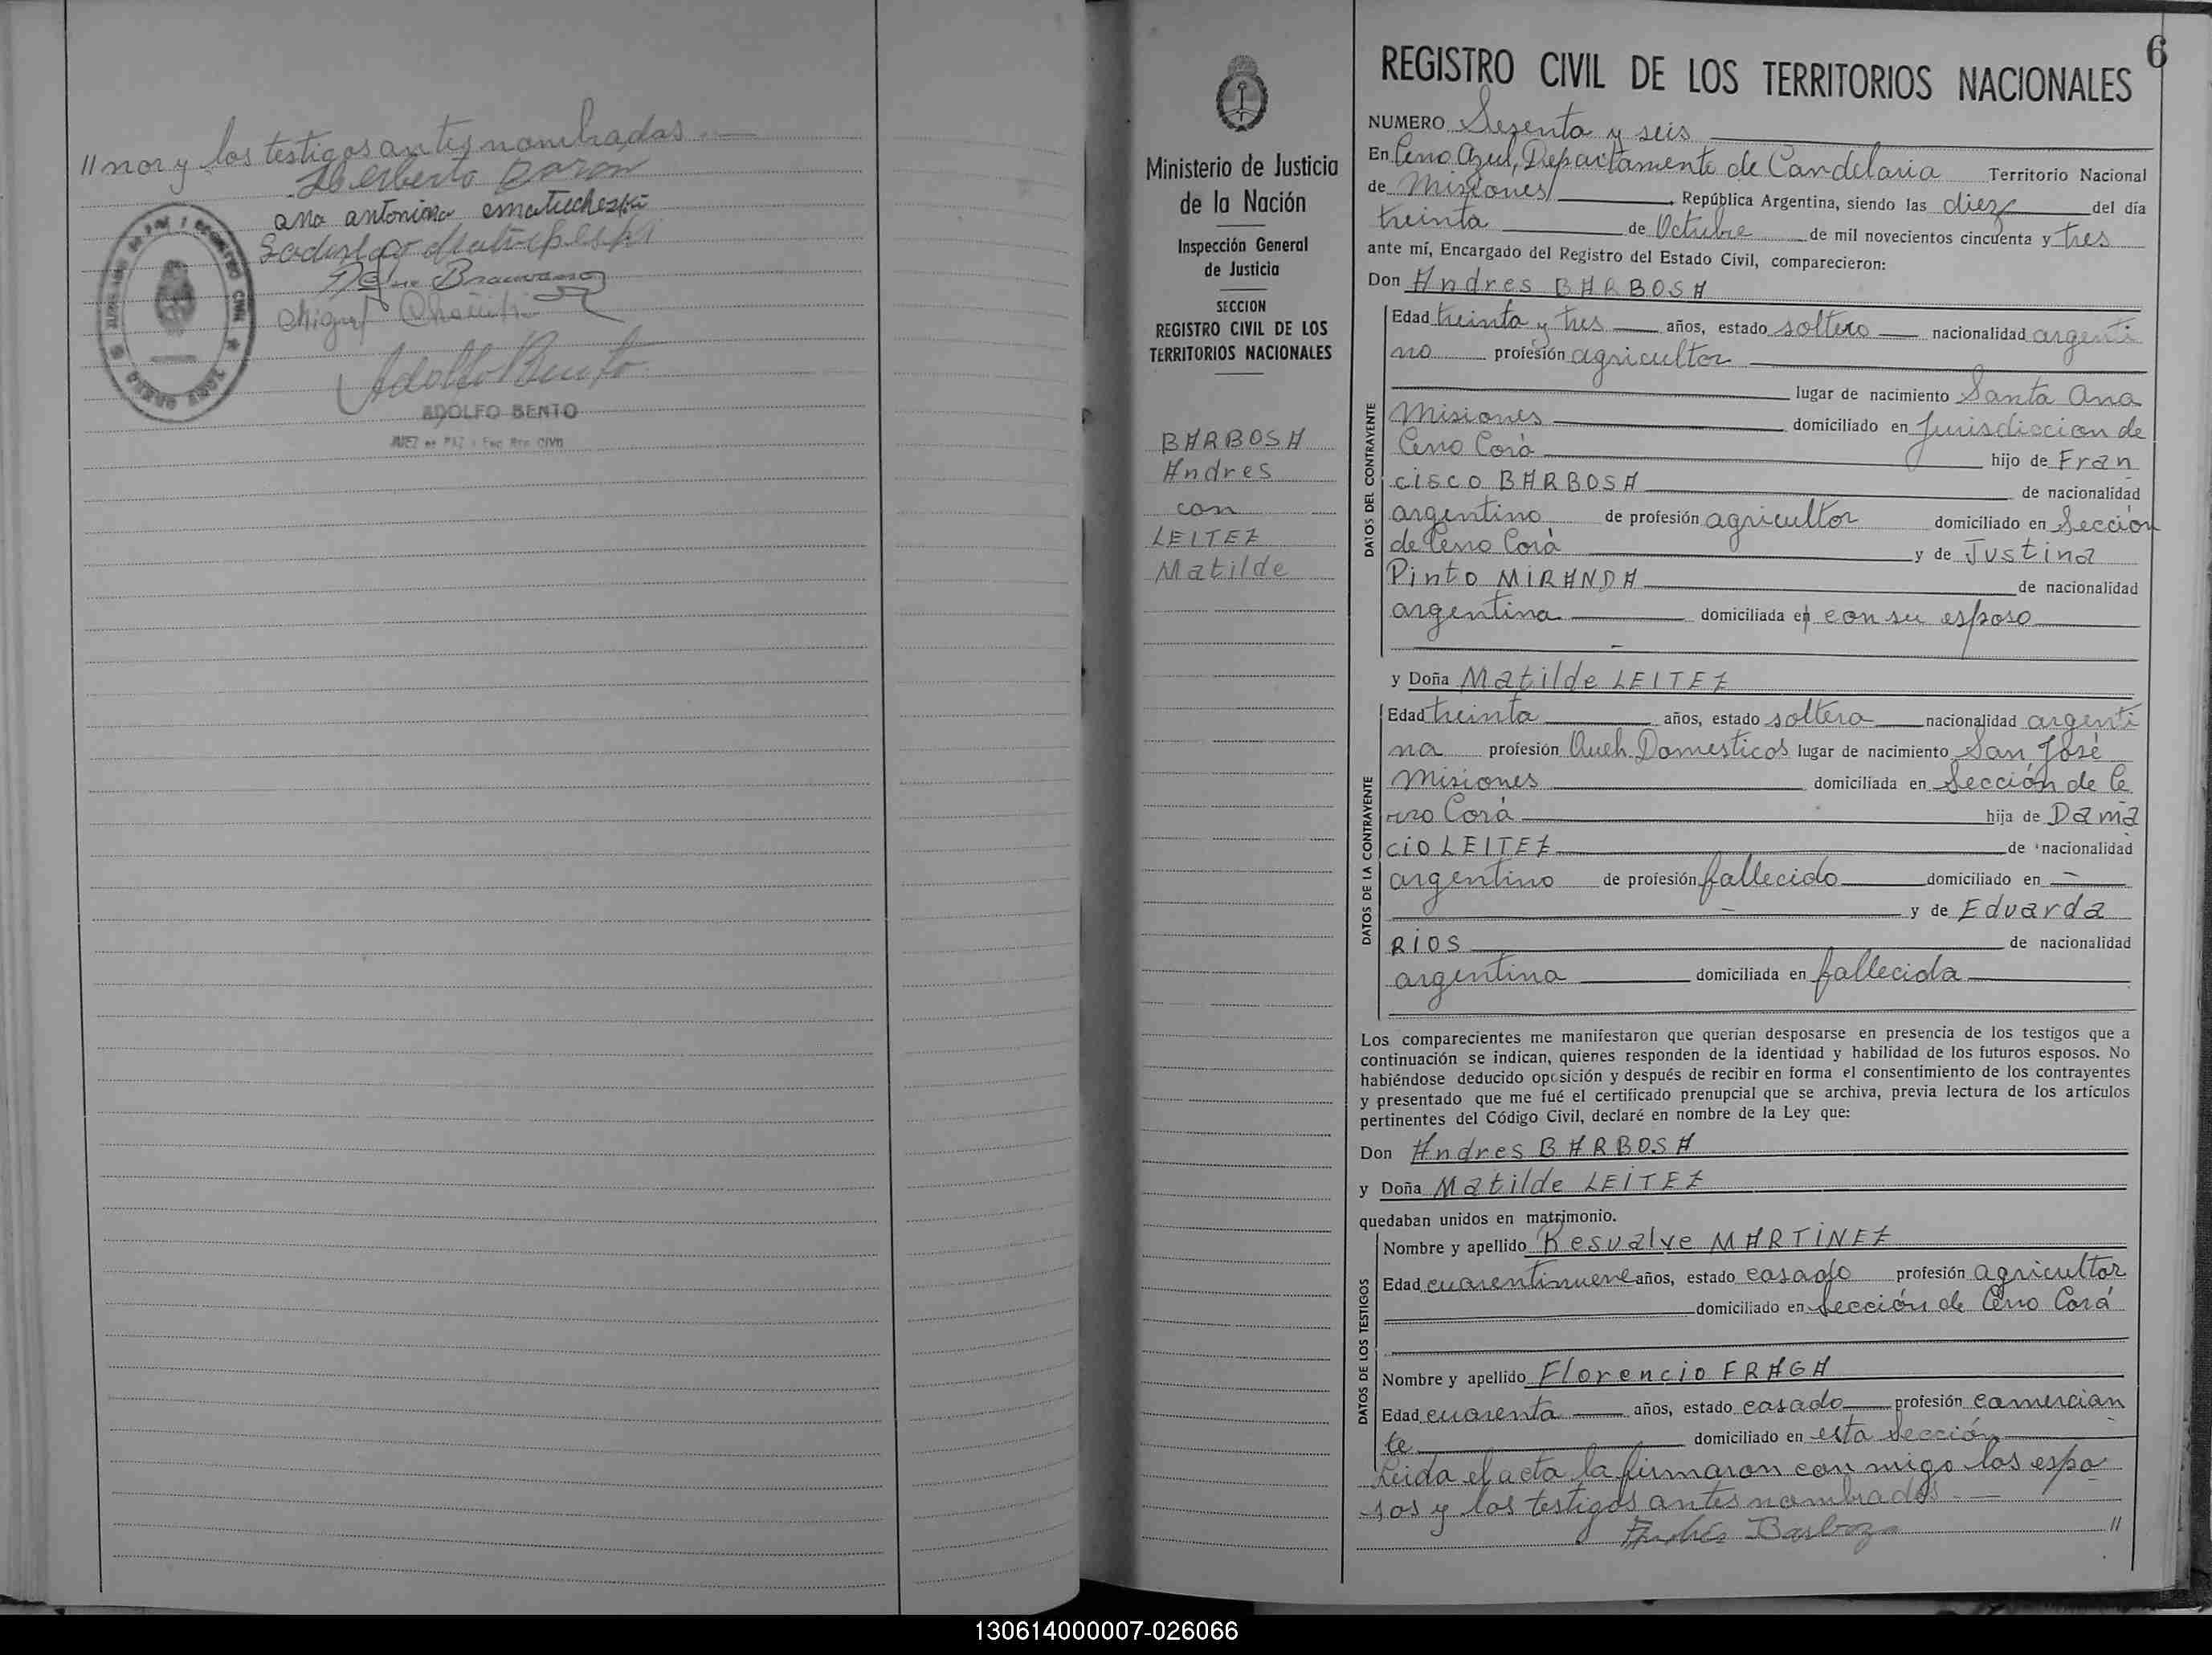 //nor y los testigos antes nombrados.—
Herberto
ana antonina
Adolfo Bento
ADOLFO BENTO
JUEZ de PAZ y Enc. Reg. CIVIL
6
Ministerio de Justicia
de la Nación
Inspección General
de Justicia
SECCION
REGISTRO CIVIL DE LOS
TERRITORIOS NACIONALES
BARBOSA
Andres
con
LEITEZ
Matilde
REGISTRO CIVIL DE LOS TERRITORIOS NACIONALES
NUMERO Sesenta y seis
En Cerro Azul, Departamento de Candelaria Territorio Nacional
de Misiones, República Argentina, siendo las diez del día
treinta de Octubre de mil novecientos cincuenta y tres
ante mí, Encargado del Registro del Estado Civil, comparecieron:
Don Andres BARBOSA
DATOS DEL CONTRAYENTE
Edad treinta y tres años, estado soltero nacionalidad argenti
no profesión agricultor
lugar de nacimiento Santa Ana
Misiones domiciliado en Jurisdiccion de
Cerro Corá hijo de Fran
cisco BARBOSA de nacionalidad
argentino de profesión agricultor domiciliado en Sección
de Cerro Corá y de Justina
Pinto MIRANDA de nacionalidad
argentina domiciliada en con su esposo
y Doña Matilde LEITEZ
DATOS DE LA CONTRAYENTE
Edad treinta años, estado soltera nacionalidad argenti
na profesión Queh. Domesticos lugar de nacimiento San José
Misiones domiciliada en Sección de Ce
rro Corá hija de Dama
cio LEITEZ de nacionalidad
argentino de profesión fallecido domiciliado en —
— y de Eduarda
RIOS de nacionalidad
argentina domiciliada en fallecida
Los comparecientes me manifestaron que querían desposarse en presencia de los testigos que a
continuación se indican, quienes responden de la identidad y habilidad de los futuros esposos. No
habiéndose deducido oposición y después de recibir en forma el consentimiento de los contrayentes
y presentado que me fué el certificado prenupcial que se archiva, previa lectura de los artículos
pertinentes del Código Civil, declaré en nombre de la Ley que:
Don Andres BARBOSA
y Doña Matilde LEITEZ
quedaban unidos en matrimonio.
DATOS DE LOS TESTIGOS
Nombre y apellido Resualve MARTINEZ
Edad cuarentinueve años, estado casado profesión agricultor
domiciliado en Sección de Cerro Corá
Nombre y apellido Florencio FRAGA
Edad cuarenta años, estado casado profesión comercian
te domiciliado en esta Sección
Leida el acta la firmaron con migo los espo
sos y los testigos antes nombrados.—
Andrés Barboza //
130614000007-026066